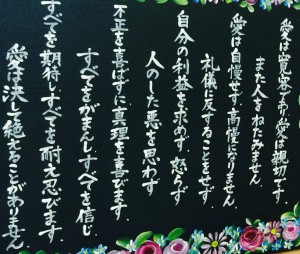 愛は寛容であり愛は親切です
また人をねたみません
愛は自慢せず、高慢になりません
礼儀に反することをせず
自分の利益を求めず、怒らず
人のした悪を思わず
不正を喜ばずに、真理を喜びます。
すべてをがまんし、すべてを信じ
すべてを期待し、すべてを耐え忍びます。
愛は決して絶えることがありません。